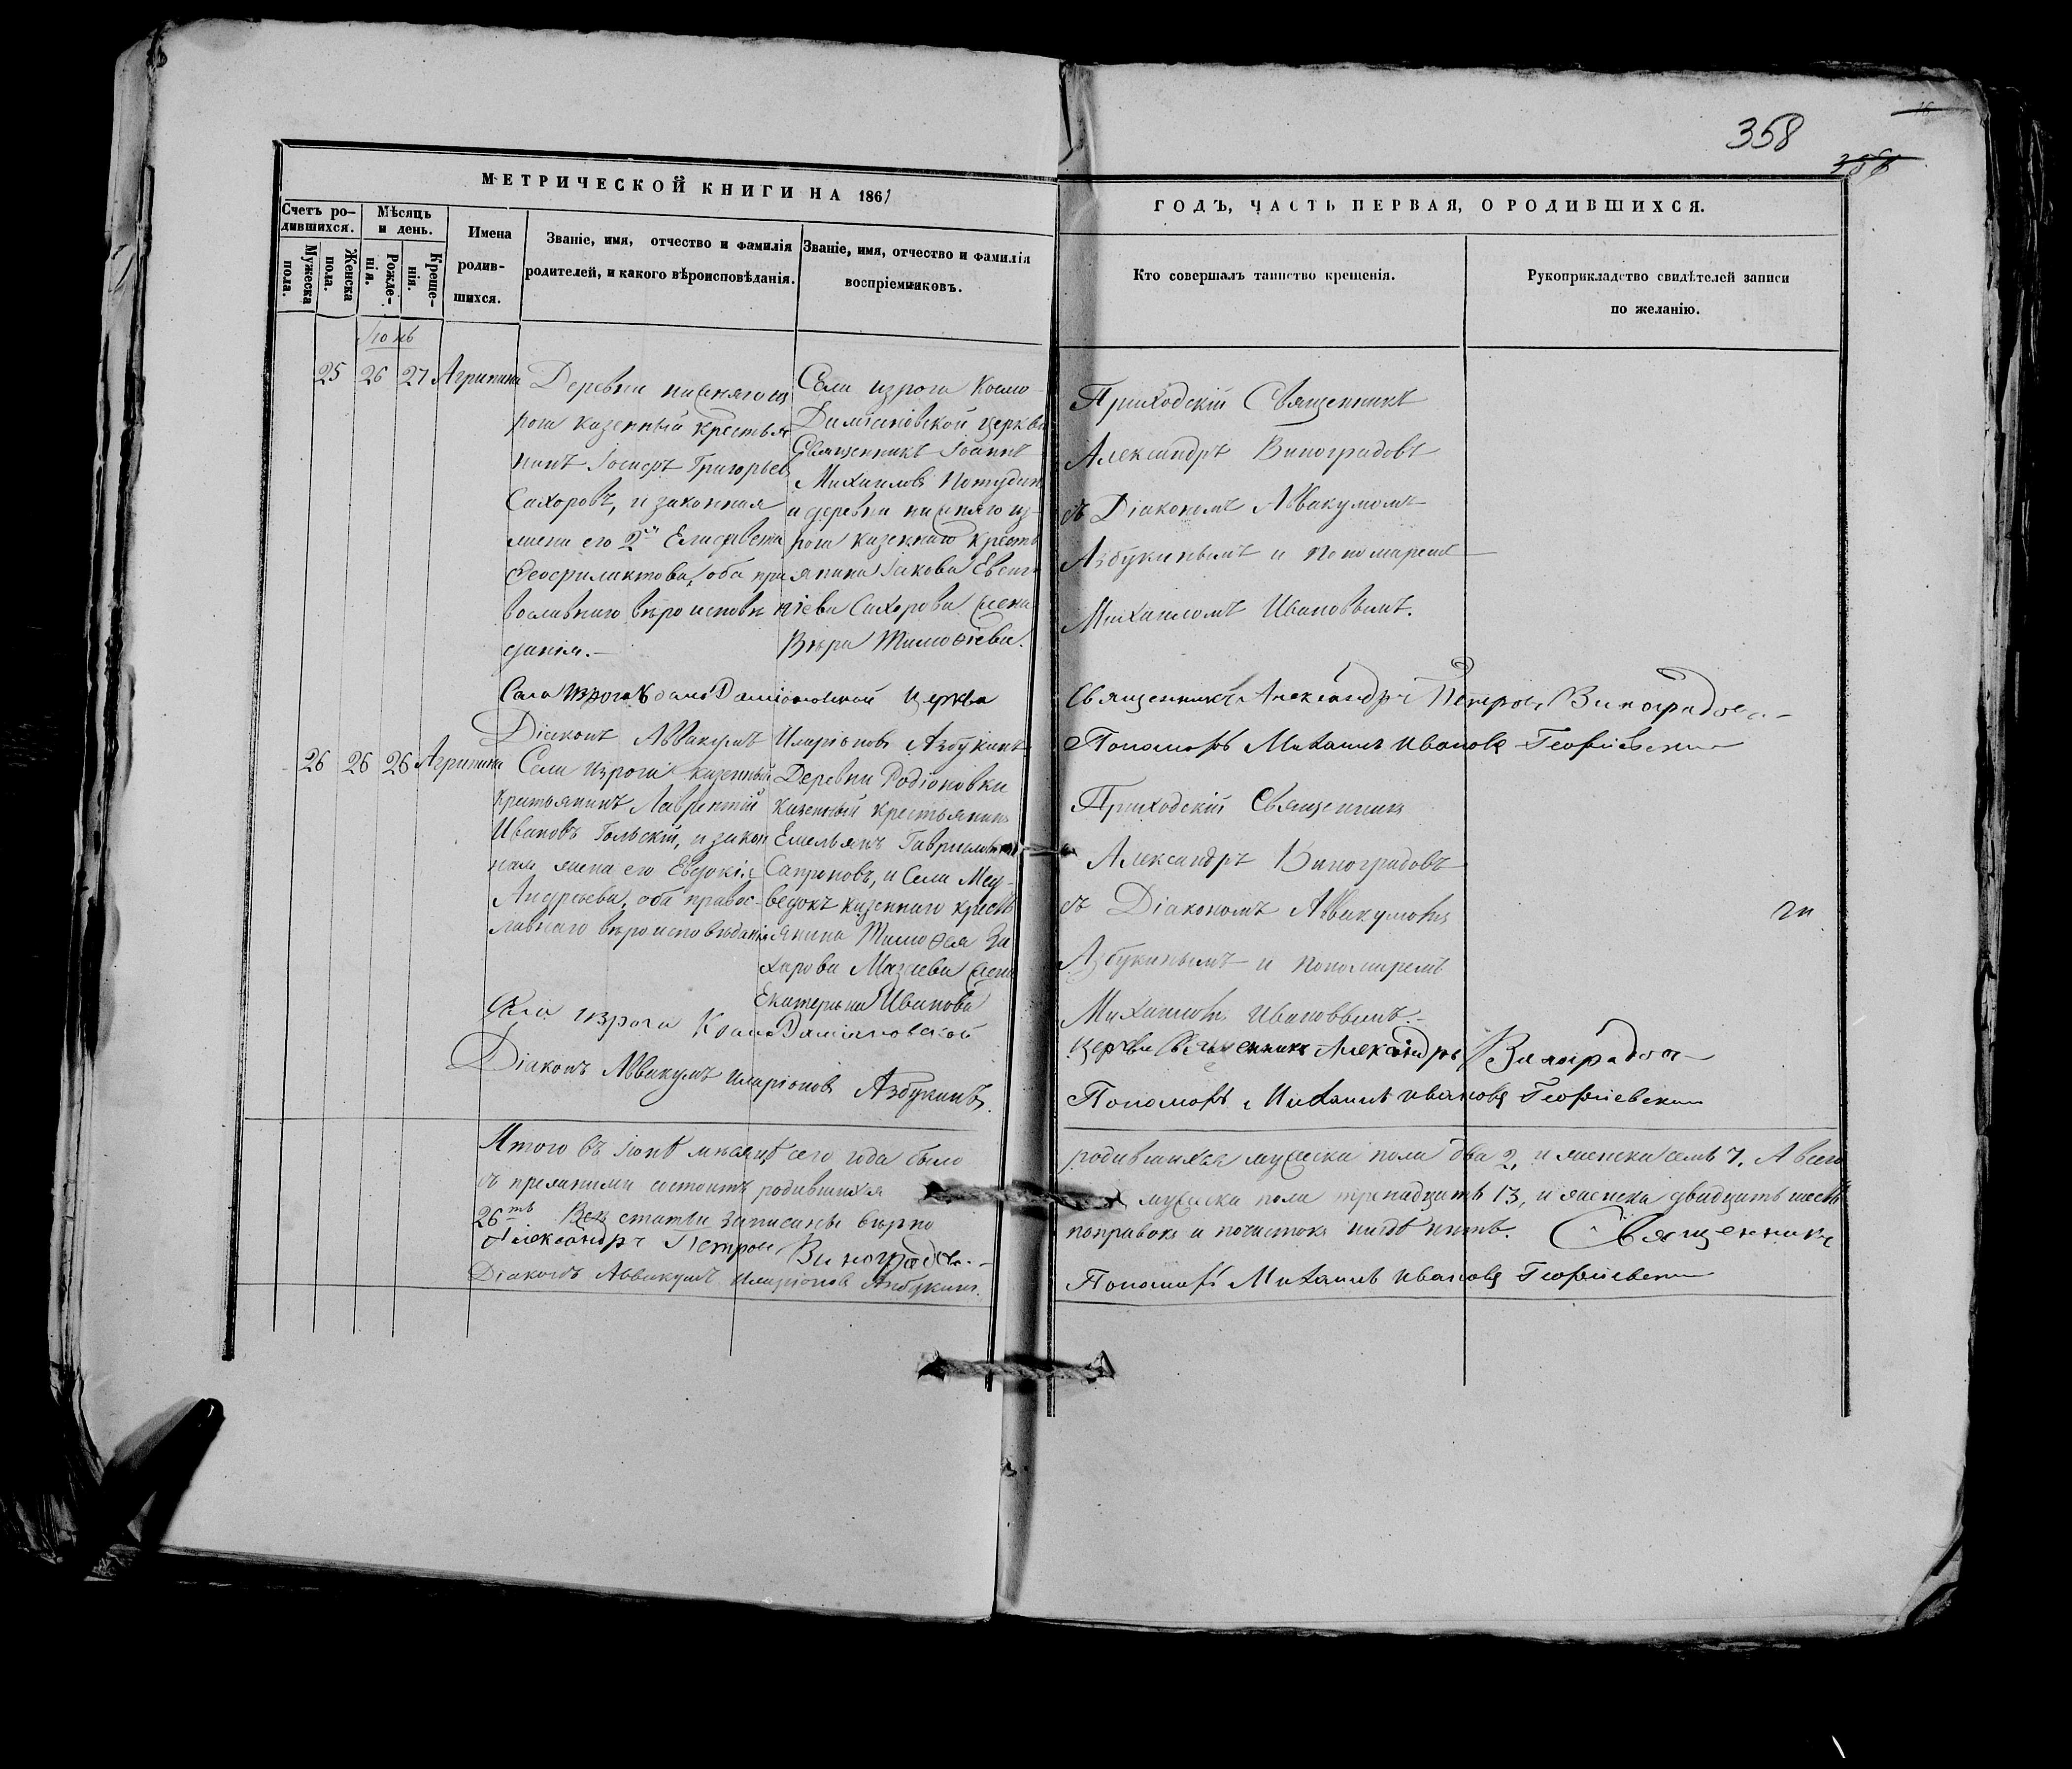 358
МЕТРИЧЕСКОЙ КНИГИ НА 1861
ГОДЪ, ЧАСТЬ ПЕРВАЯ, О РОДИВШИХСЯ.
Счетъ ро-
дившихся.
Мужеска пола.
Женска пола.
Мѣсяцъ
и день.
Рожде-
нія.
Креще-
нія.
Имена
родив-
шихся.
Званіе, имя, отчество и фамилія
родителей, и какого вѣроисповѣданія.
Званіе, имя, отчество и фамилія
воспріемниковъ.
Кто совершалъ таинство крещенія.
Рукоприкладство свидѣтелей записи
по желанію.
Іюнь
25 26 27 Агрипина
Деревни нижняго из
рога казенный крестья
нинъ Іосифъ Григорьев
Сахоровъ, и законная
жена его 2я Елисавета
Феофилактова, оба пра
вославнаго вѣроисповѣ
данія.
Села изрога Космо
Даміановской церкви
Священникъ Іоаннъ
Михаиловъ Потудин
и деревни нижняго из
рога казеннаго кресть
янина Іакова Евсиг
ніева Сахорова жена
Вѣра Тимоѳіева.
Приходскій Священникъ
Александръ Виноградовъ
съ Діакономъ Аввакумомъ
Азбукинымъ и пономаремъ
Михаиломъ Ивановымъ.
Села Изрога Космо Даміановской церкви
Священникъ Александръ Петровъ Виноградовъ
Діаконъ Аввакумъ Иларіоновъ Азбукинъ
Пономарь Михаилъ Ивановъ Георгіевскій
26 26 26 Агрипина
Села Изрога казенный
крестьянинъ Лаврентій
Ивановъ Гольскій, и закон
ная жена его Евдокія
Андреева, оба правос-
лавнаго вѣроисповѣданія
Деревни Родіоновки
казенный крестьянинъ
Емельянъ Гавриловъ
Сапроновъ, и Села Мед-
ведокъ казеннаго кресть
янина Тимоѳея За
харова Мазаева жена
Екатерина Иванова
Приходскій Священникъ
Александръ Виноградовъ
съ Діакономъ Аввакумомъ
Азбукинымъ и пономаремъ
Михаиломъ Ивановымъ.
Села изрога Космо Даміановской
церкви Священникъ Александръ Виноградовъ
Діаконъ Аввакумъ Иларіоновъ Азбукинъ.
Пономарь Михаилъ Ивановъ Георгіевскій
Итого въ Іюнѣ мѣсяцѣ сего года было
родившихся мужеска пола два 2, и женска семь 7. А всего
съ прежними состоитъ родившихся
мужеска пола тренадцать 13, и женска двадцать шесть
26ть Всѣ статьи записаны вѣрно
поправокъ и почистокъ нигдѣ нѣтъ. Священникъ
Александръ Петровъ Виноградовъ
Діаконъ Аввакумъ Иларіоновъ Азбукинъ.
Пономарь Михаилъ Ивановъ Георгіевскій